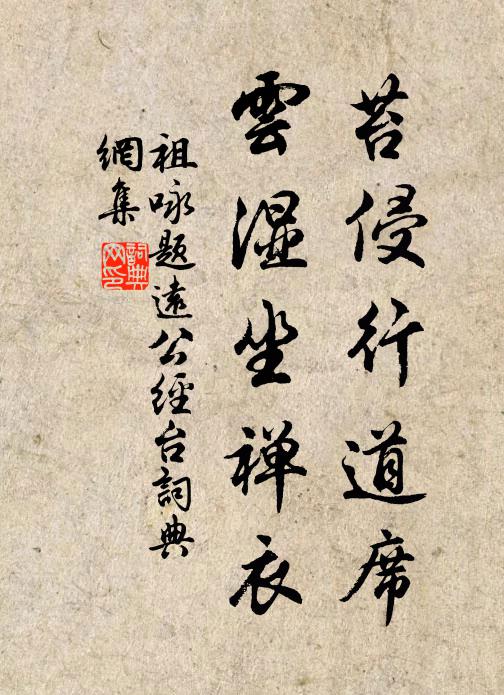 苔侵行道席
雲湿坐禅衣
祖咏题遠公經台詞典
網集
詞典
网印